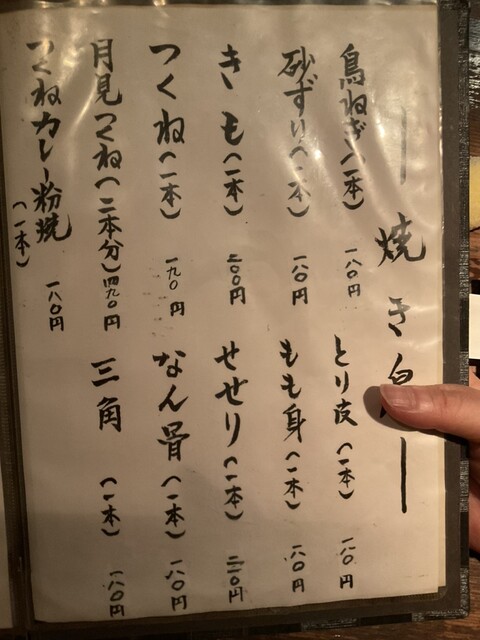 焼き鳥
鳥ねぎ(一本) 一八〇円
砂ずり(一本) 一八〇円
きも(一本) 二〇〇円
つくね(一本) 一九〇円
月見つくね(二本分) 四九〇円
つくねカレー粉焼(一本) 一八〇円
とり皮(一本) 一八〇円
もも身(一本) 一八〇円
せせり(一本) 二二〇円
なん骨(一本) 一八〇円
三角(一本) 一八〇円